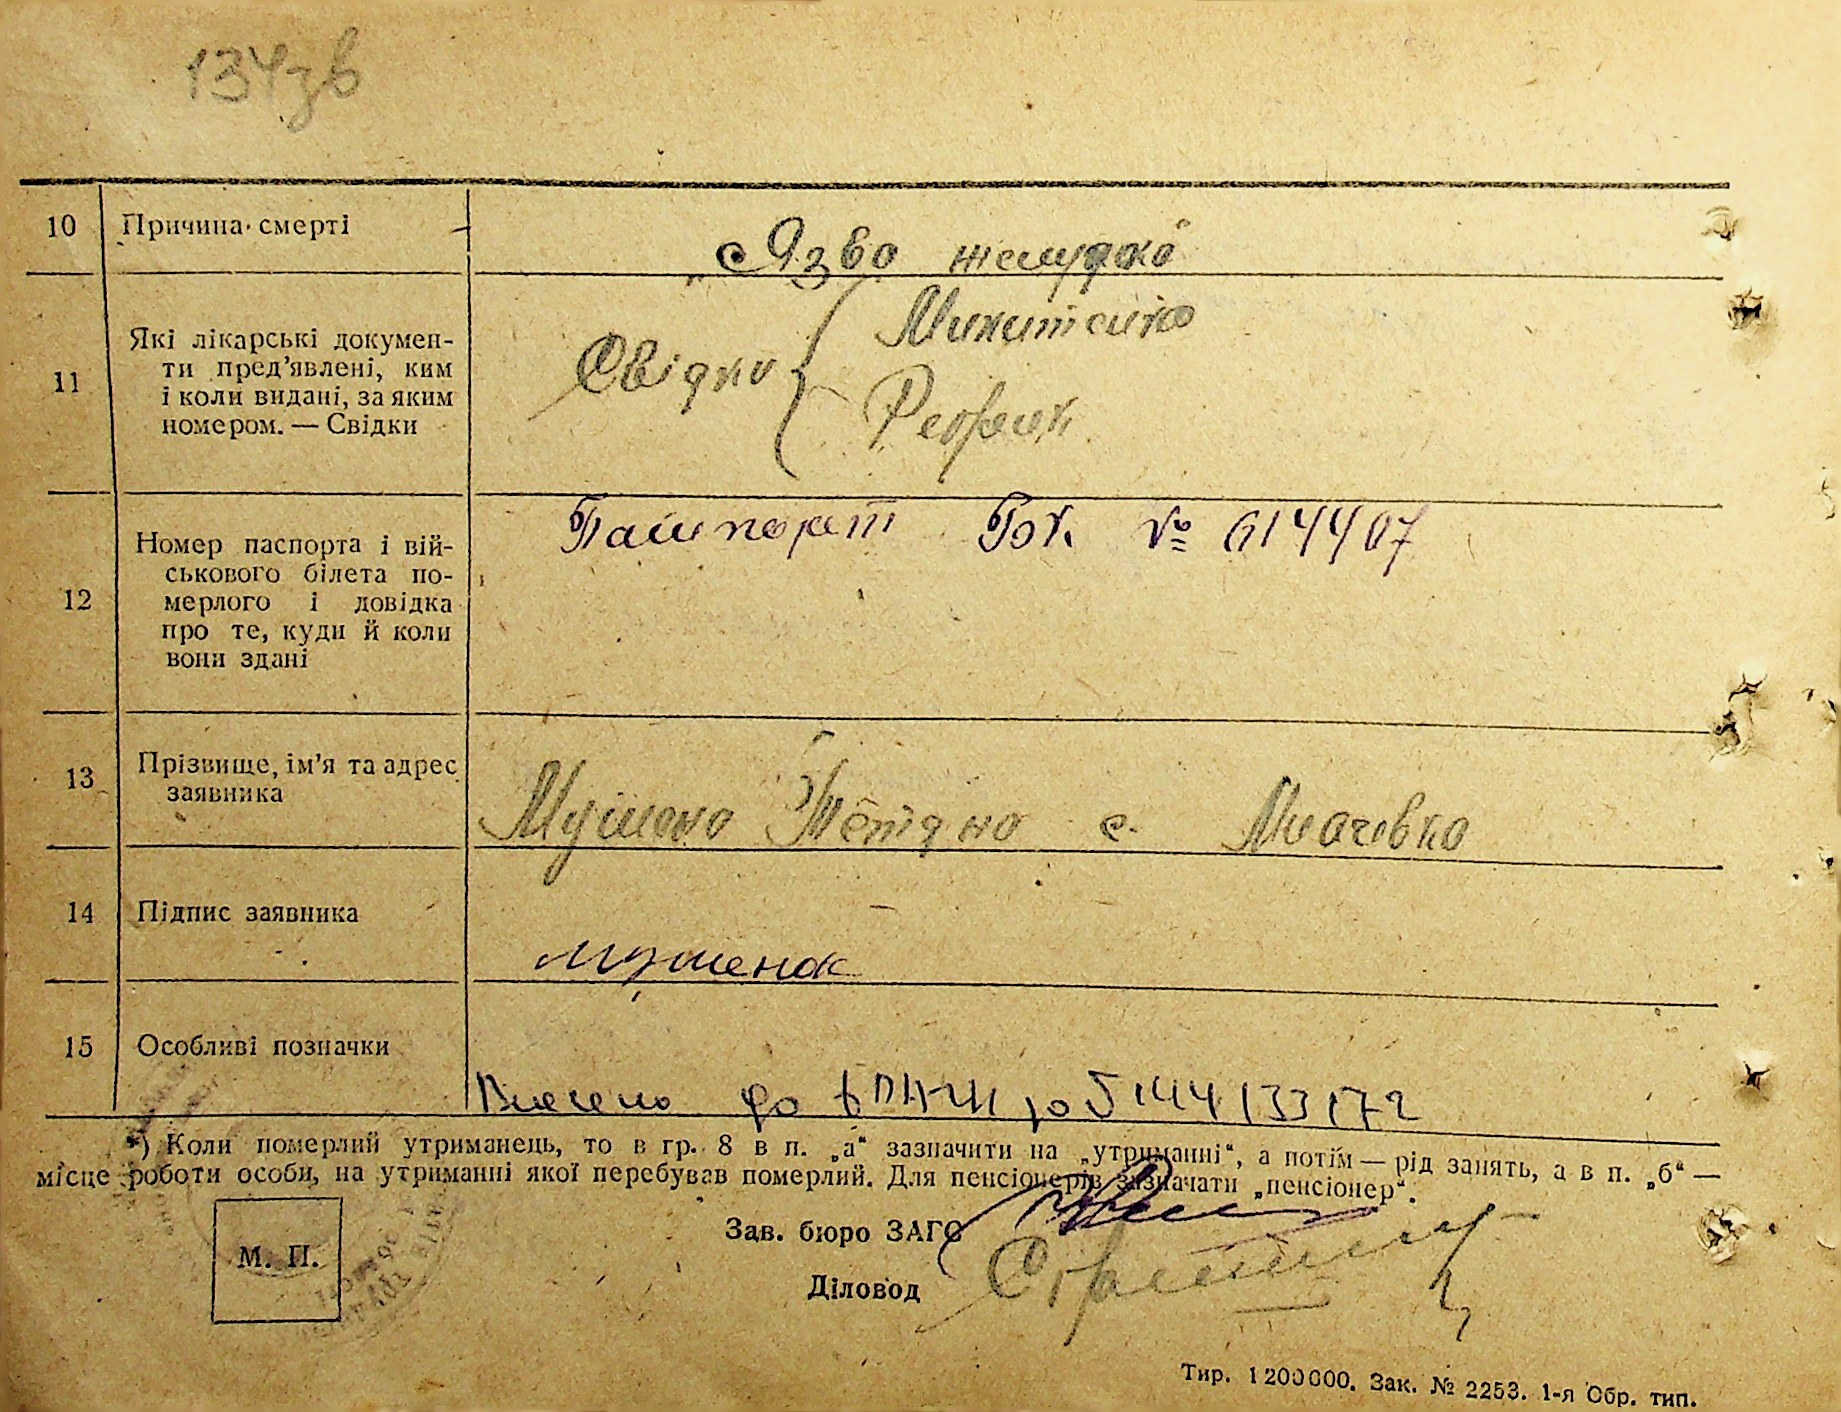 134зв
10 Причина смерті
Язва желудка
11 Які лікарські докумен-
ти пред’явлені, ким
і коли видані, за яким
номером. — Свідки
Свідки
Микитенко
12 Номер паспорта і вій-
ськового білета по-
мерлого і довідка
про те, куди й коли
вони здані
Пашпорт № 614407
13 Прізвище, ім’я та адрес
заявника
Мушенко Тетяна с.
14 Підпис заявника
Мушенок
15 Особливі позначки
Внесено до 5144133172
*) Коли померлий утриманець, то в гр. 8 в п. „а“ зазначити на „утриманні“, а потім — рід занять, а в п. „б“ —
місце роботи особи, на утриманні якої перебував померлий. Для пенсіонерів зазначати „пенсіонер“.
Зав. бюро ЗАГС
М. П.
Діловод
Тир. 1200000. Зак. № 2253. 1-я Обр. тип.